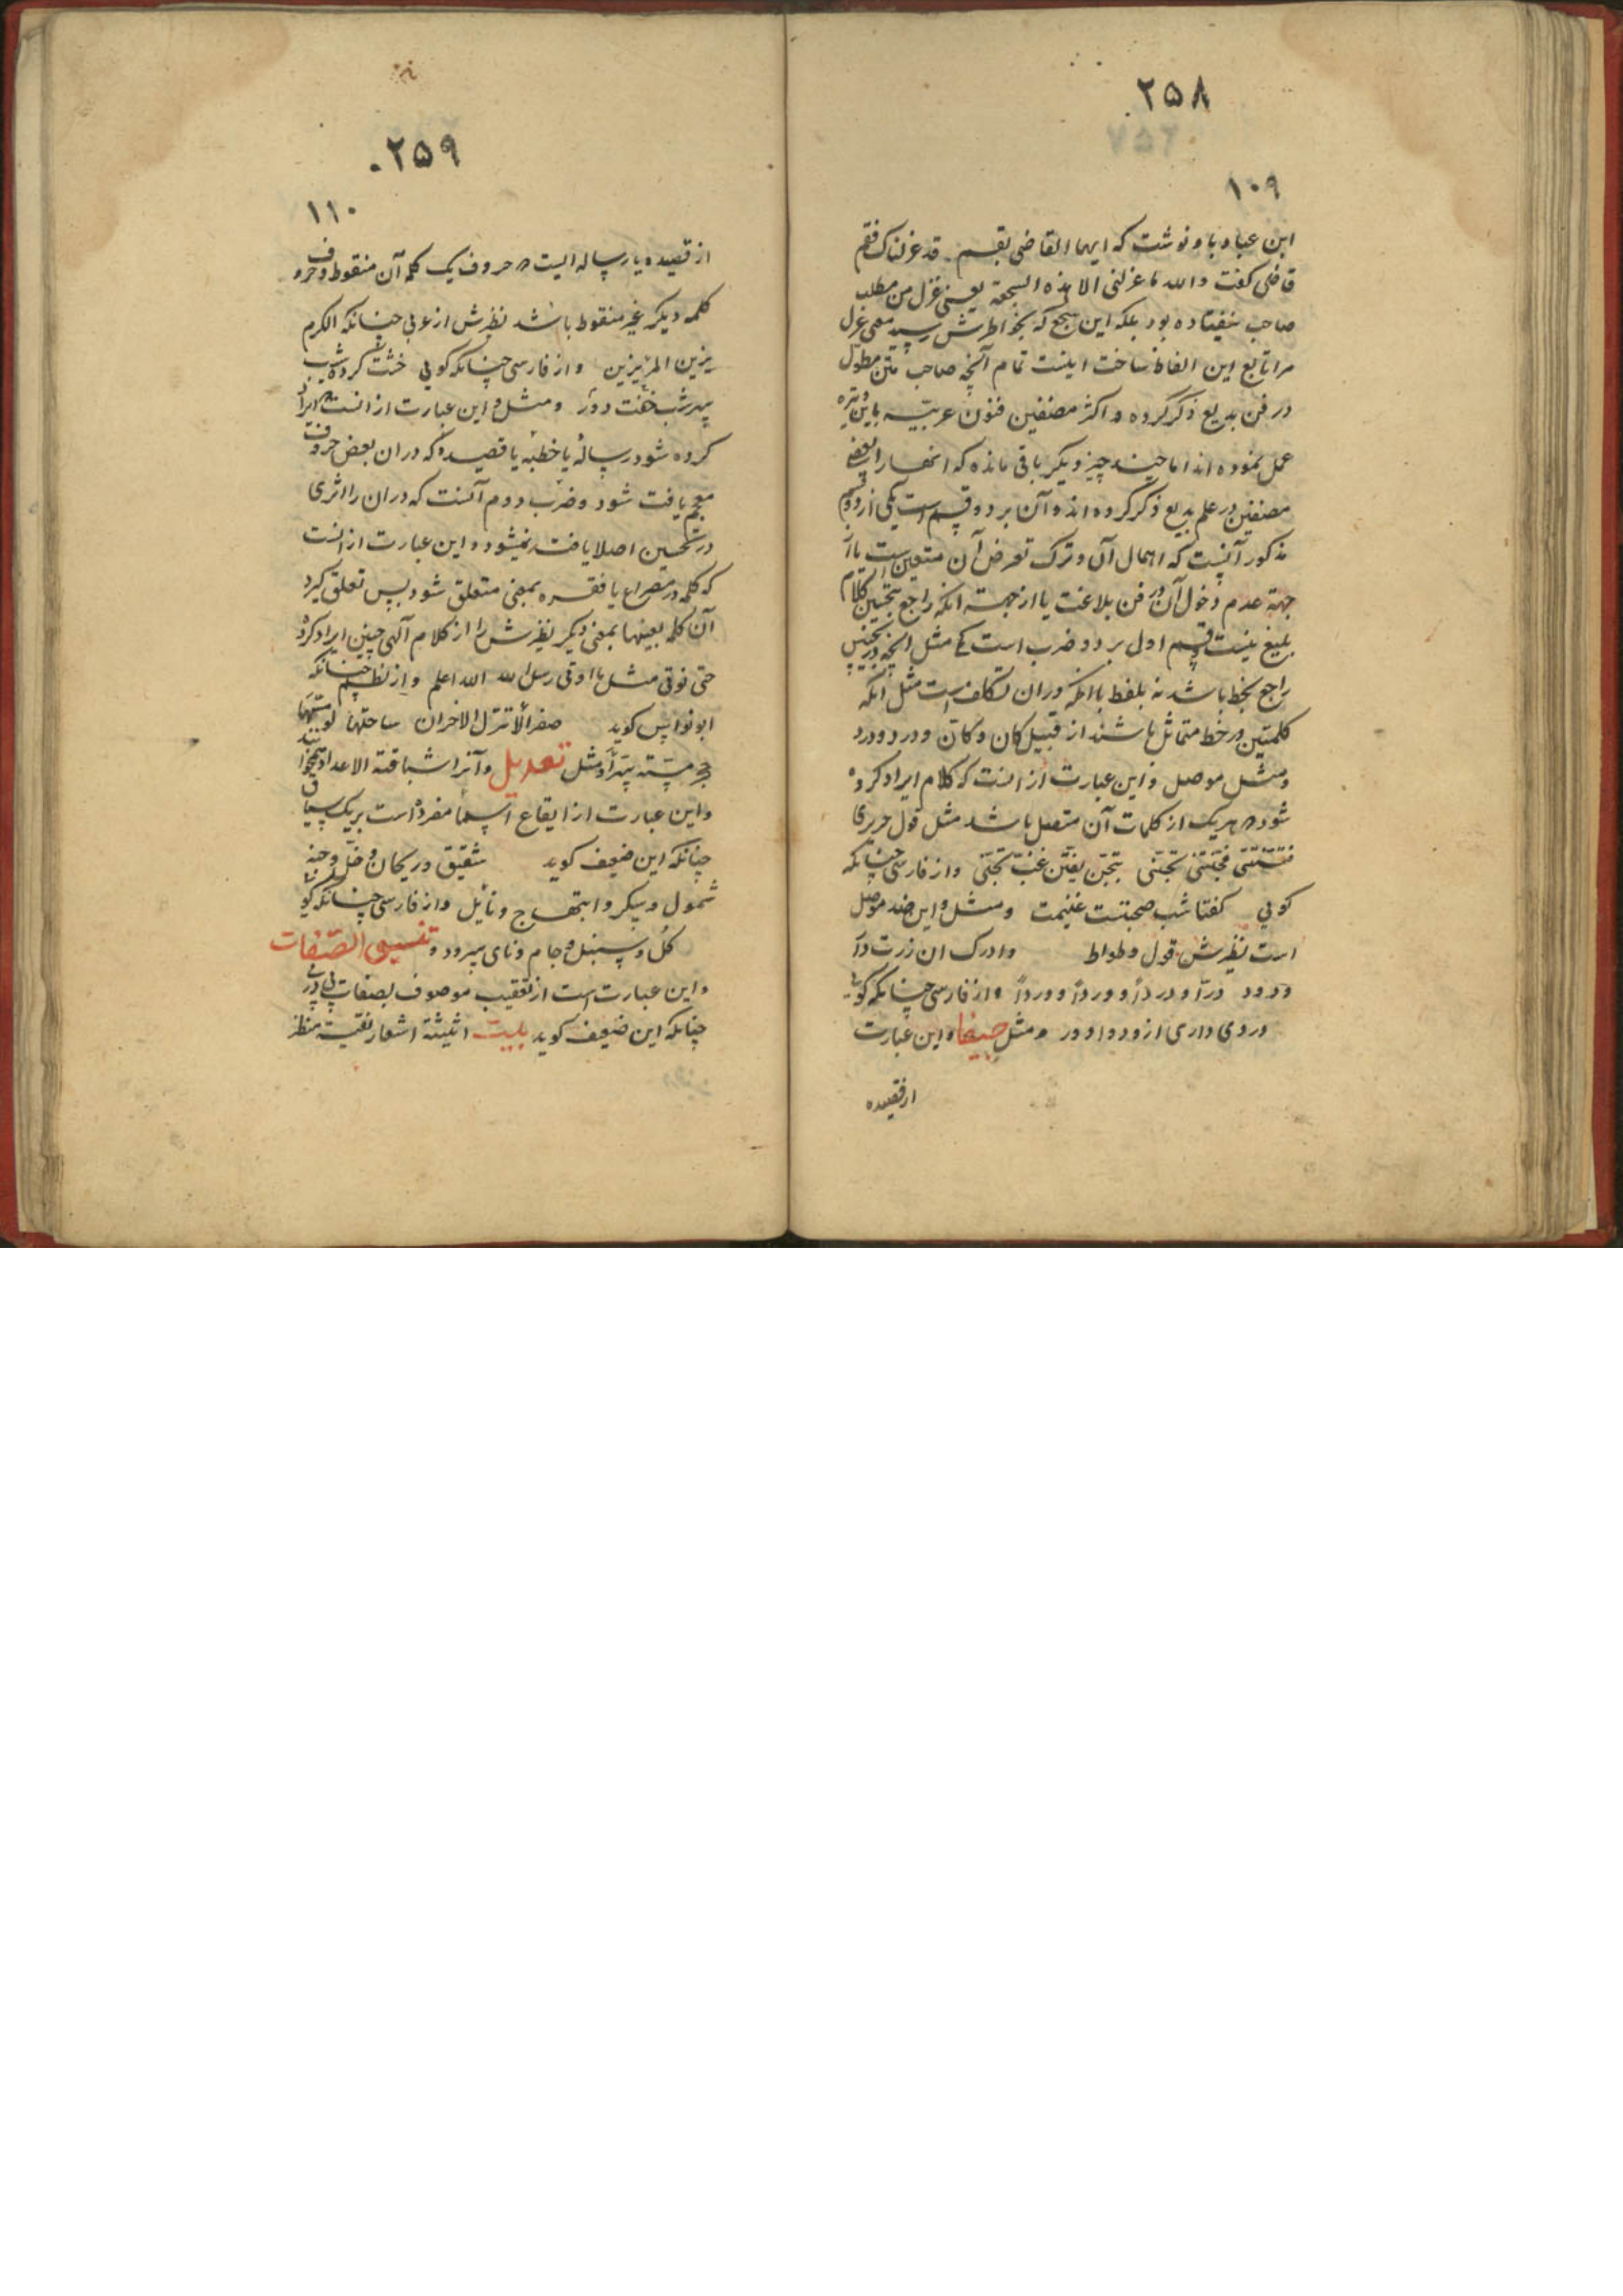 ۲۵۸
۱۰۹
ابن عباد باو نوشت که ایها القاضی بقم قد عزلناک فقم
قاضی کفت والله ما عزلنی الا هذه السجعة یعنی عزل من مطلب
صاحب نیفتاده بود بلکه این سجع که بخواطرش رسید معنی عزل
مرا تابع این الفاظ ساخت اینست تمام آنچه صاحب متن مطول
در فن بدیع ذکر کرده و اکثر مصنفین فنون عربیه باین وتیره
عمل نموده اند اما چند چیز دیکر باقی مانده که انهارا بعضی
مصنفین در علم بدیع ذکر کرده اند و آن بر دو قسم است یکی از دو قسم
مذکور آنست که اهمال آن و ترک تعرض آن متعین است یا از
جهة عدم دخول آن در فن بلاغت یا از جهت انکه راجع بتحسین کلام
بلیغ نیست قسم اول بر دو ضرب است یکی مثل انچه در تجنیس
راجع بخط باشد نه بلفظ با انکه در ان تکلف است مثل انکه
کلمتین در خط متماثل باشند از قبیل کان و کان و درد و درد
و مثل موصل و این عبارت از انست که کلام ایراد کرده
شود که هریک از کلمات آن متصل باشد مثل قول حریری
فتنتنی فجننتنی تجنی بتجن یفتن غب تجنی و از فارسی چنانکه
کوئی کفتا شب صحبتت غنیمت و مثل و این ضد موصل
است نظیرش قول وطواط وادرک ان زرت دار
ودود درا و دردا و وردا و وردا و از فارسی چنانکه کوئی
دردی داری از ودود اوور و مثل حیفا و این عبارت
از قصیده
۲۵۹
۱۱۰
از قصیده یا رساله ایست که حروف یک کلمه آن منقوط و حروف
کلمه دیکر غیر منقوط باشد نظیرش از عربی چنانکه الکرم
یزین المرء یزین و از فارسی چنانکه کوئی خشت کرد شیب
شب خفت دور و مثل و این عبارت از انست که ایراد
کرده شود رسالهٔ یا خطبه یا قصیده که در ان بعض حروف
معجم یافت نشود و ضرب دوم آنست که در ان را اثری
در تحسین اصلا یافت نمیشود و این عبارت از انست
که کلمه در مصراع یا فقره بمعنی متعلق شود پس تعلق کیرد
آن کلمه بعینها بمعنی دیکر نظیرش را از کلام آلهی چنین ایراد کرده
حتی نوتی مثل ما اوتی رسل الله الله اعلم و از نظم چنانکه
ابو نواس کوید صفراء لا تنزل الاحزان ساحتها لو مستها
حجر مسته سرا و مثل تعدیل و آنرا سیاقة الاعداد میخوانند
و این عبارت از ایقاع اسماء مفرده است بر یک سیاق
چنانکه این ضعیف کوید شقیق و ریحان و خل و جنه
شمول و سکر و ابتهاج و نایل و از فارسی چنانکه کوئی
کل و سنبل و جام و نای سرود و تنسیق الصفات
و این عبارت است از تعقیب موصوف بصفات پی در پی
چنانکه این ضعیف کوید بیت اثیثة اشعار نقیة منظر